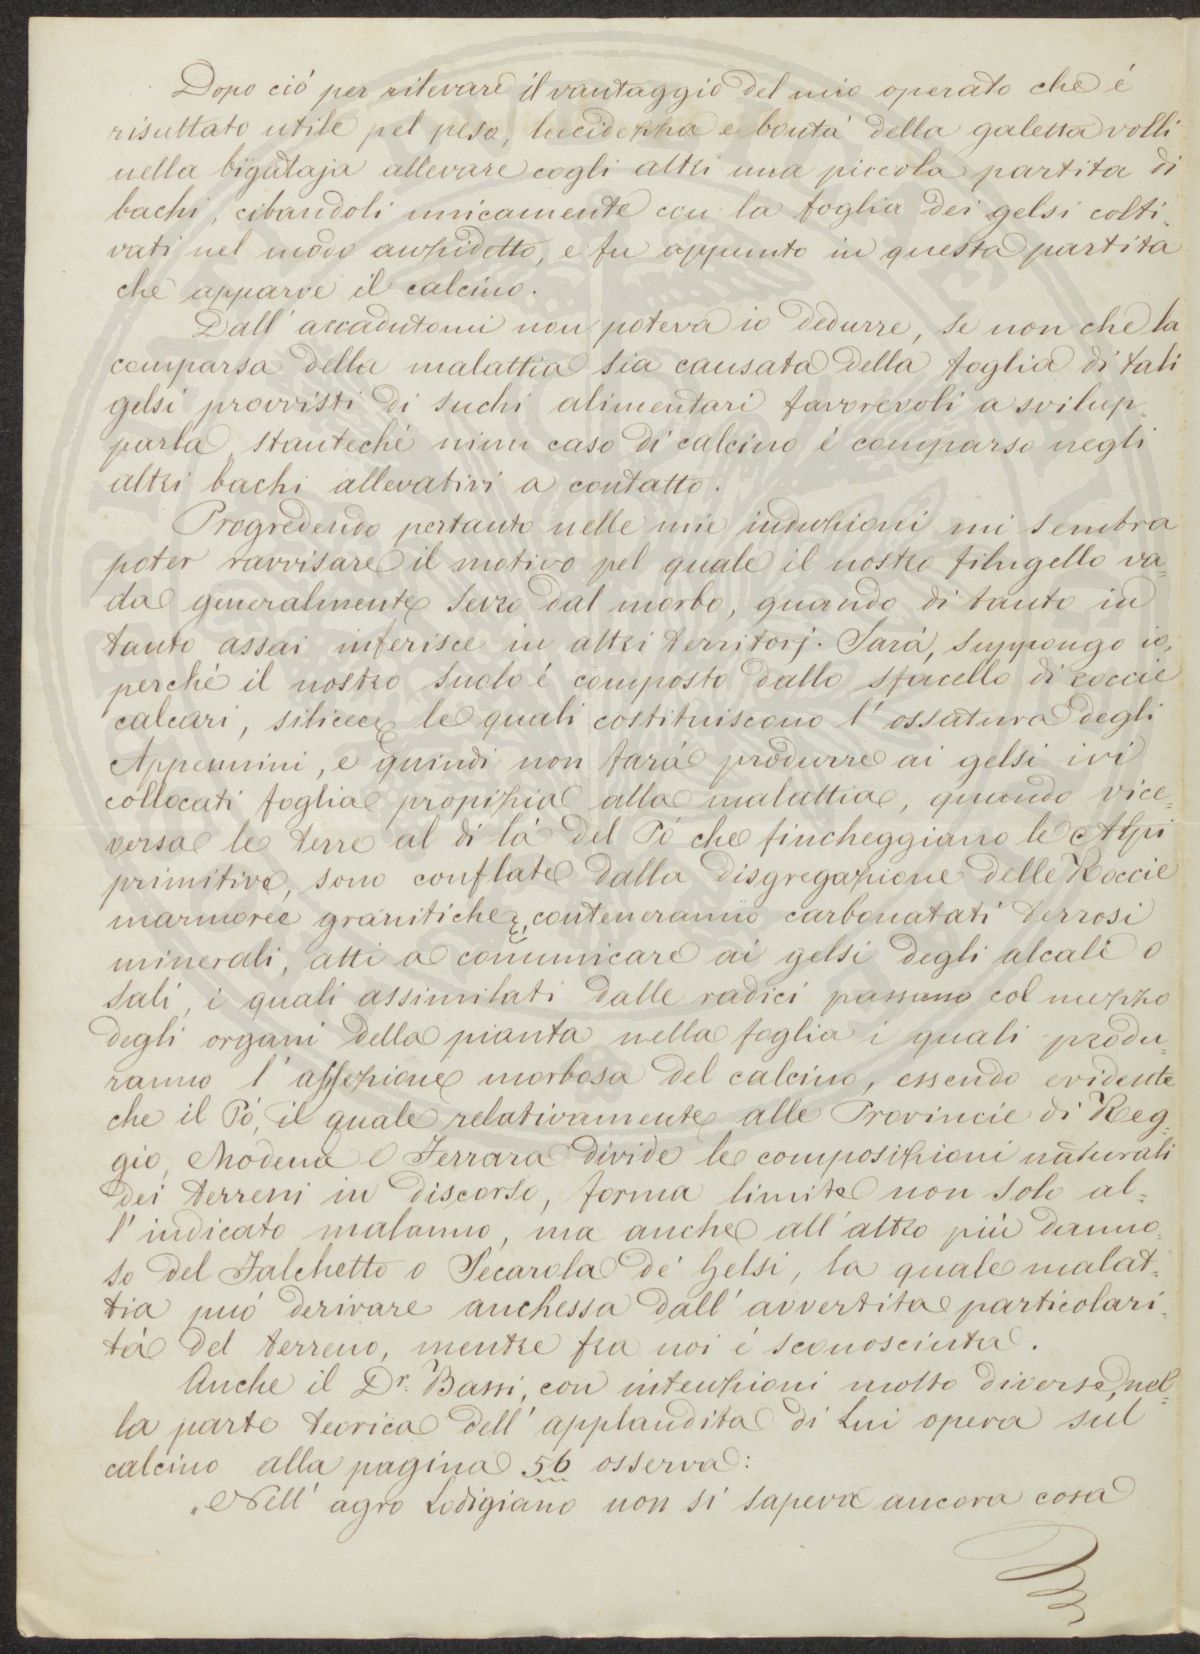 Dopo ciò per rilevare il vantaggio del mio operato che è
risultato utile pel peso, lucidezza e bontà della galetta volli
nella bigattaja allevare cogli altri una piccola partita di
bachi, cibandoli unicamente con la foglia dei gelsi colti-
vati nel modo anzidetto, e fu appunto in questa partita
che apparve il calcino.
Dall'accadutomi non poteva io dedurre, se non che la
comparsa della malattia sia causata della foglia di tali
gelsi provvisti di suchi alimentari favorevoli a svilup-
parla, stantechè niun caso di calcino è comparso negli
altri bachi allevativi a contatto.
Progredendo pertanto nelle mie induzioni mi sembra
poter ravvisare il motivo pel quale il nostro filugello va-
da generalmente sevro dal morbo, quando di tanto in
tanto assai inferisce in altri territorj. Sarà, suppongo io,
perchè il nostro suolo è composto dallo sfacello di roccie
calcari, silicee le quali costituiscono l'ossatura degli
Appennini, e quindi non farà produrre ai gelsi ivi
collocati foglia propizia alla malattia, quando vice-
versa le terre al di là del Pò che fincheggiano le Alpi
primitive, sono conflate dalla disgregazione delle Roccie
marmoree granitiche, conteneranno carbonatati terrosi
minerali, atti a comunicare ai gelsi degli alcali o
sali, i quali assimilati dalle radici passano col mezzo
degli organi della pianta nella foglia i quali produ-
ranno l'affezione morbosa del calcino, essendo evidente
che il Pò, il quale relativamente alle Provincie di Reg-
gio, Modena e Ferrara divide le composizioni naturali
dei terreni in discorso, forma limite non solo al-
l'indicato malanno, ma anche all'altro più danno-
so del Falchetto o Secarola de' Gelsi, la quale malat-
tia può derivare anchessa dall'avvertita particolari-
tà del terreno, mentre fra noi è sconosciuta.
Anche il Dr. Bassi, con intenzioni molto diverse, nel-
la parte teorica dell'applaudita di Lui opera sul
calcino alla pagina 56 osserva:
„Nell'agro Lodigiano non si sapeva ancora cosa